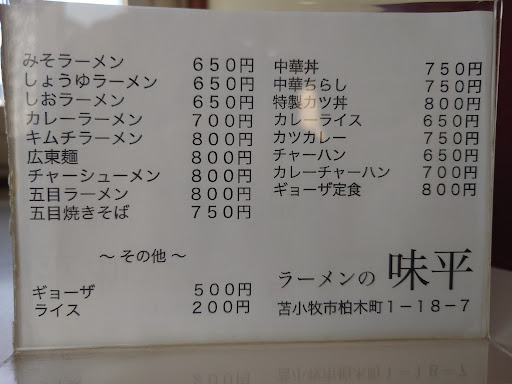 みそラーメン 650円
しょうゆラーメン 650円
しおラーメン 650円
カレーラーメン 700円
キムチラーメン 800円
広東麺 800円
チャーシューメン 800円
五目ラーメン 800円
五目焼きそば 750円
～その他～
ギョーザ 500円
ライス 200円
中華丼 750円
中華ちらし 750円
特製カツ丼 800円
カレーライス 650円
カツカレー 750円
チャーハン 650円
カレーチャーハン 700円
ギョーザ定食 800円
ラーメンの 味平
苫小牧市柏木町1－18－7